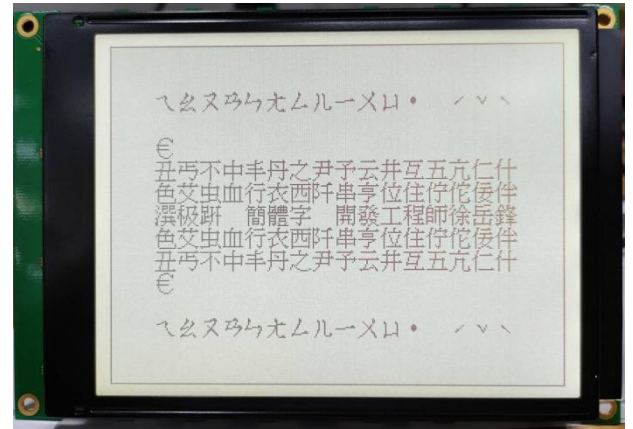 ㄟㄠㄡㄢㄣㄤㄥㄦㄧㄨㄩ˙ ˊˇˋ
€
丑丐不中丰丹之尹予云井互五亢仁什
色艾虫血行衣西阡串亨位住佇佗佞伴
簡體字 開發工程師徐岳鋒
色艾虫血行衣西阡串亨位住佇佗佞伴
丑丐不中丰丹之尹予云井互五亢仁什
€
ㄟㄠㄡㄢㄣㄤㄥㄦㄧㄨㄩ˙ ˊˇˋ